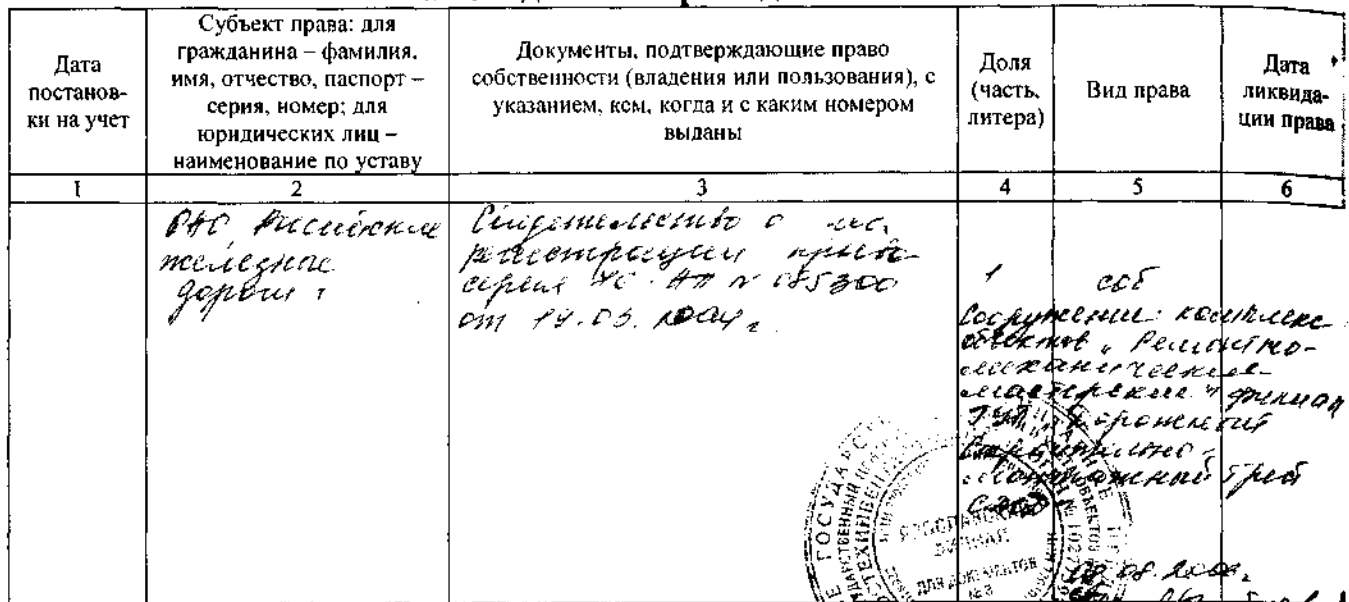 Дата
постанов-
ки на учет
Субъект права: для
гражданина – фамилия,
имя, отчество, паспорт –
серия, номер; для
юридических лиц –
наименование по уставу
Документы, подтверждающие право
собственности (владения или пользования), с
указанием, кем, когда и с каким номером
выданы
Доля
(часть,
литера)
Вид права
Дата
ликвида-
ции права
1 2 3 4 5 6
ОАО "Российские
железные
дороги"
Свидетельство о
регистрации права
серия АП № 085300
от 2004 г.
1 соб
Сооружение: комплекс
объектов "Ремонтно-
механические
мастерские" филиал
Строительно-
монтажный трест
ЯРОСЛАВСКИЙ
ФИЛИАЛ
ДЛЯ ДОКУМЕНТОВ